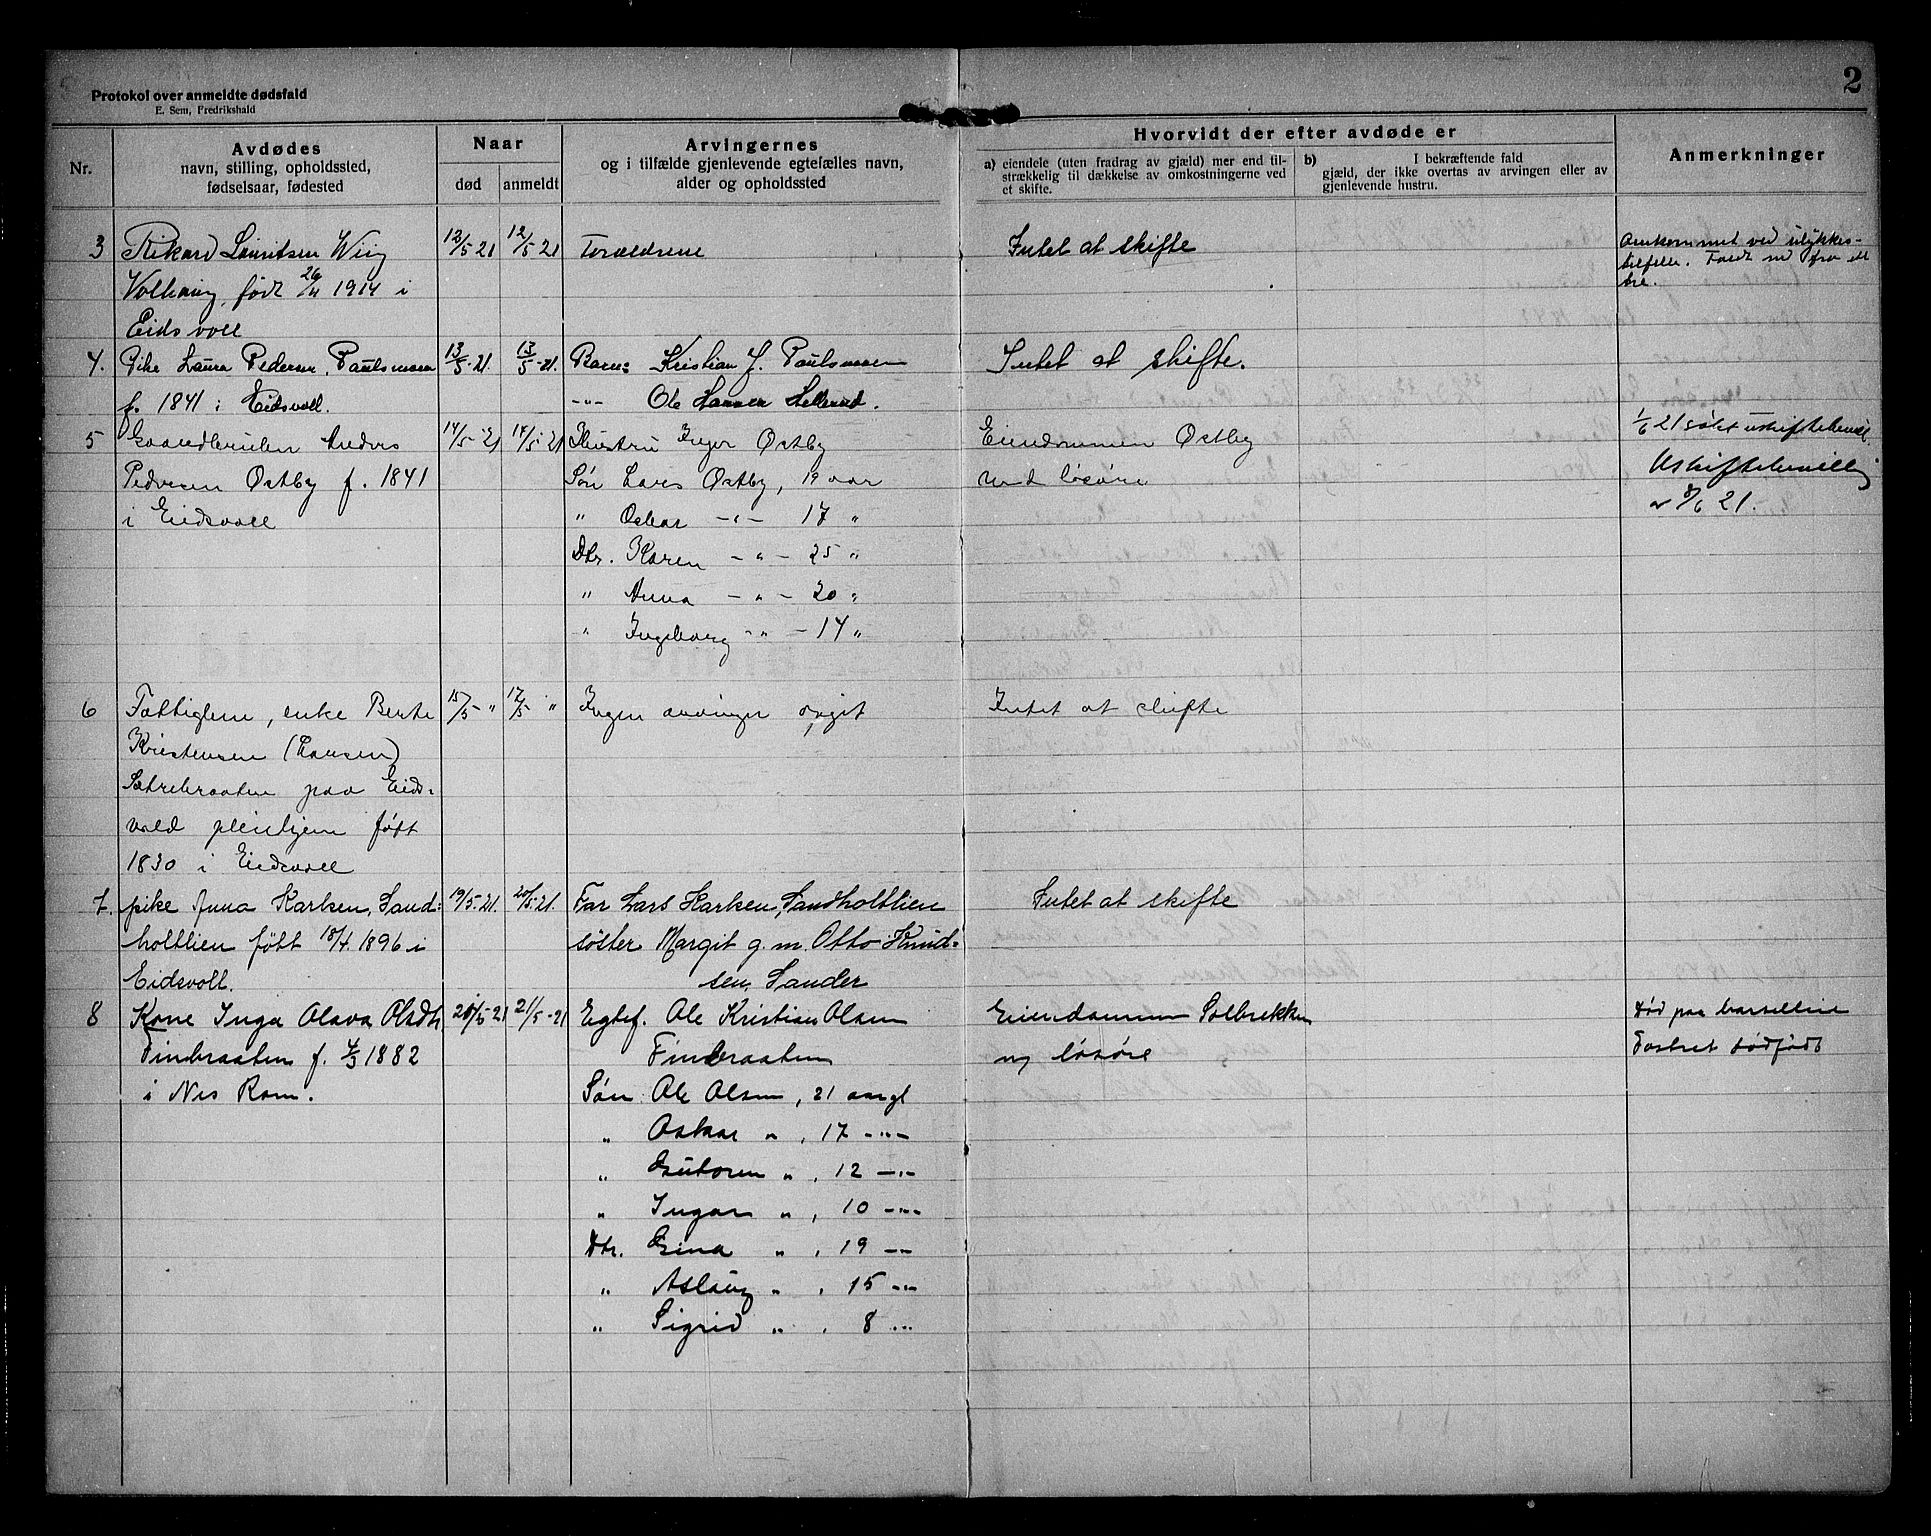 Protokol over anmeldte dødsfald
E. Sem, Fredrikshald
2
Nr.
Avdødes
navn, stilling, opholdssted,
fødselsaar, fødested
Naar
død
anmeldt
Arvingernes
og i tilfælde gjenlevende egtefælles navn,
alder og opholdssted
Hvorvidt der efter avdøde er
a) eiendele (uten fradrag av gjæld) mer end til-
strækkelig til dækkelse av omkostningerne ved
et skifte.
b) I bekræftende fald
gjæld, der ikke overtas av arvingen eller av
gjenlevende hustru.
Anmerkninger
3 Rikard Lauritsen Wiig 12/5 21 12/5 21 Foræeldrene Intet at skifte Omkommet ved ulykkes-
født 26/4 1914 i tilfelle. Faldt ned fra et
Eidsvoll tre.
4. Pike Laura Pedersen, Paulsmoen 13/5-21. 13/5-21. Barn: Kristian J. Paulsmoen Intet at skifte.
f. 1841 i Eidsvoll. -"- Ole Hansen Hellerud.
5 Gaardbruker Anders 14/5-21 14/5-21 Hustru Inger Østby Eiendommen Østby 1/6 21 søkt uskiftebevill.
Pedersen Østby f. 1841 Søn Lars Østby, 19 aar med løsøre Uskiftebevilling
i Eidsvoll " Oskar -"- 17 " 21.
Dtr. Karen -"- 25 "
" Anna -"- 20 "
" Ingeborg -"- 14 "
6 Fattiglem, enke Berte 15/5- " 17/5 " Ingen arvinger opgit Intet at skifte
Kristensen (Hansen)
Sætrebraaten paa Eids-
vold pleiehjem født
1830 i Eidsvoll
7. pike Anna Karlsen, Sand- 19/5.21. 20/5.21. Far Lars Karlsen, Sandholtlien Intet at skifte
holtlien født 18/4. 1896 i søster Margit g. m. Otto Knud-
Eidsvoll. sen, Sander
8 Kone Inga Olava Olsdtr 20/5-21 21/5-21 Egtef. Ole Kristian Olsen Eiendommen Solbrekken Død paa barselseng
Finbraaten f. 4/3 1882 Finbraaten og løsøre Fostret dødfødt
i Nes Rom. Søn Ole Olsen, 21 aar gl
" Oskar " , 17 -"-
" Gutorm " , 12 -"-
" Ingar " , 10 -"-
Dtr. Gina " , 19 -"-
" Aslaug " , 15 -"-
" Sigrid " , 8 -"-